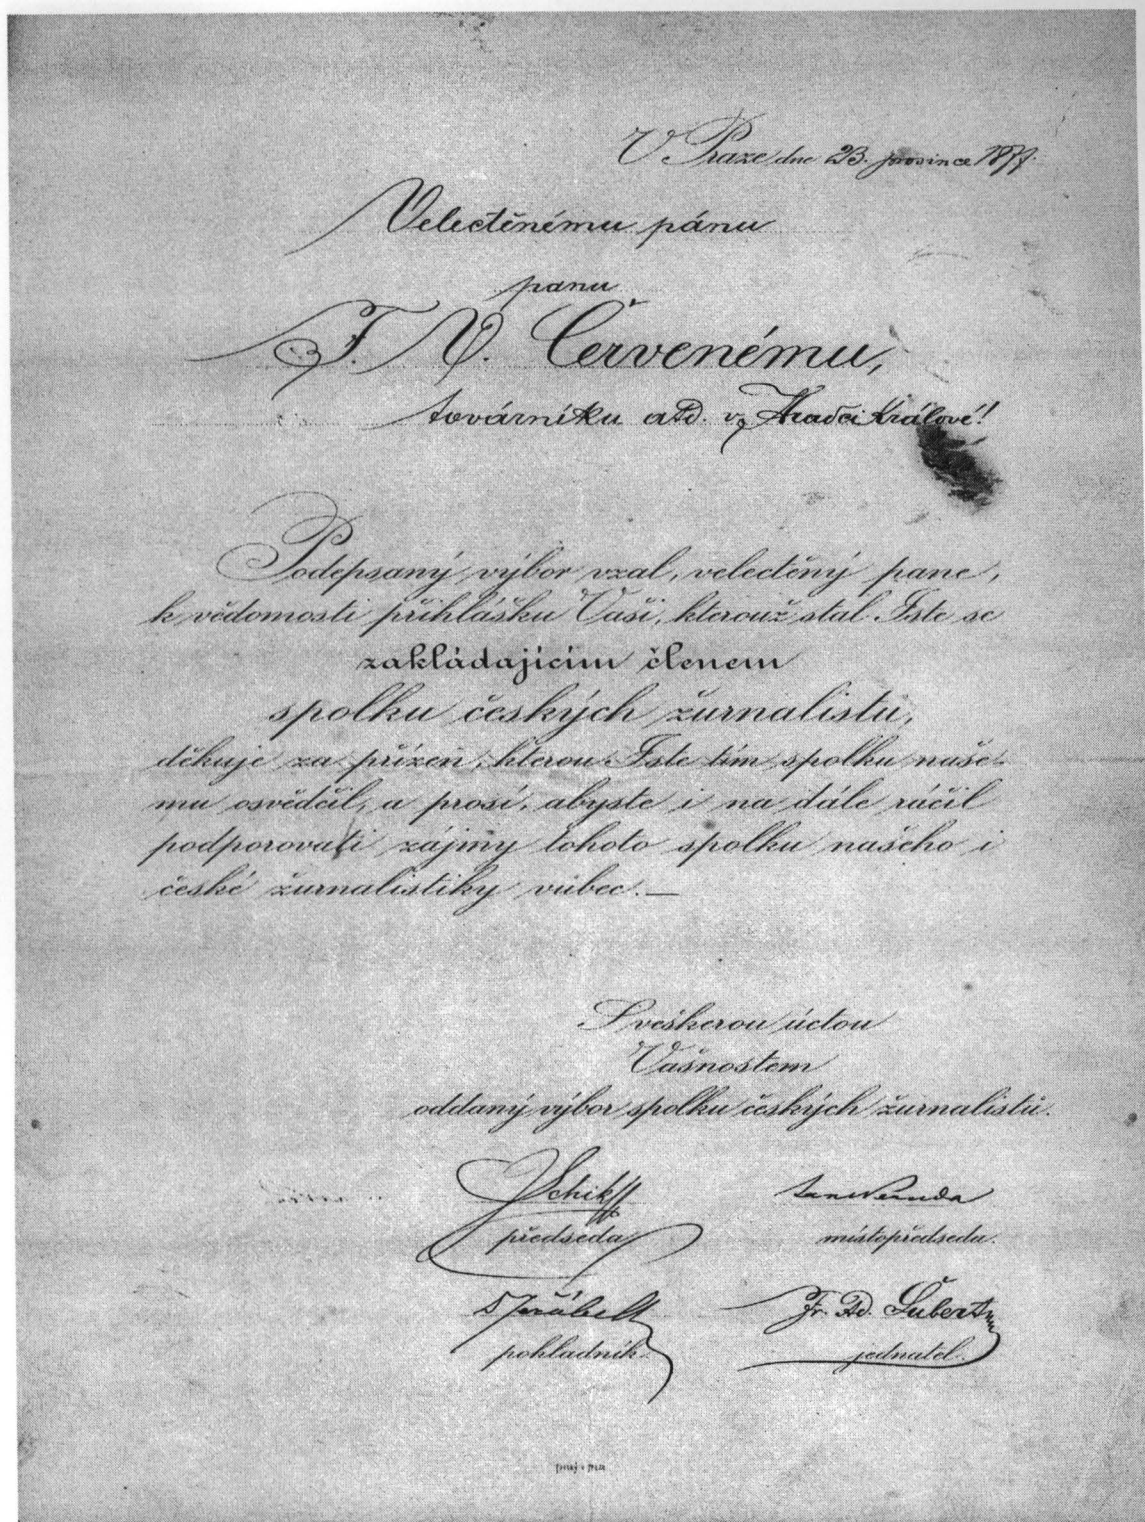 V Praze dne 23. prosince 1877.
Velectěnému pánu
panu
F. V. Červenému,
továrníku atd. v Hradci Králové!
Podepsaný výbor vzal, velectěný pane,
k vědomosti přihlášku Vaši, kterouž stal Jste se
zakládajícím členem
spolku českých žurnalistů,
děkuje za přízeň, kterou Jste tím spolku naše-
mu osvědčil, a prosí, abyste i na dále ráčil
podporovati zájmy tohoto spolku našeho i
české žurnalistiky vůbec.—
S veškerou úctou
Vašnostem
oddaný výbor spolku českých žurnalistů.
předseda
místopředseda.
Fr. Ad. Šubert
pokladník.
jednatel.